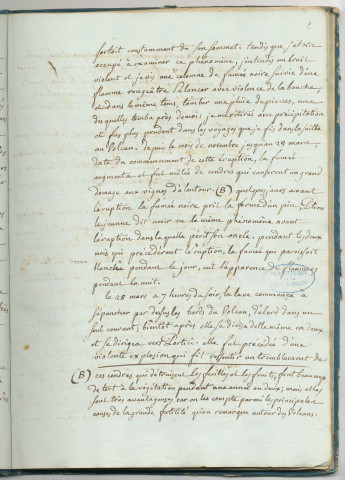 2
sortoit constamment de son sommet. tandis que j'etois
occupé a examiner ce phénomene, j'entendis un bruit
violent et je vis une colomne de fumée noire suivie d'une
flamme rougeâtre s'élancer avec violence de la bouche,
et dans le même tems, tomber une pluie de pierres, une
desquelles tomba près de moi, je me retirai avec précipitation
et fus plus prudent dans les voyages que je fis dans la suite
au Volcan. depuis le mois de novembre jusqu'au 28 mars,
date du commencement de cette éruption, la fumée
augmenta et fut mêlée de cendres qui causerent un grand
domage aux vignes d'alentour. (B) quelques jours avant
l'éruption la fumée noire prit la forme d'un pin. Pline
le jeune dit avoir vu le même phénomène avant
l'éruption dans laquelle périt son oncle. pendant les jours
qui précédèrent l'éruption, la fumée qui paroissoit
blanche pendant le jour, eut l'apparence de flammes
pendant la nuit.
le 28 mars a 7 heures du soir, la lave commença a
s'épancher par dessus les bords du Volcan, d'abord dans un
seul courant; bientôt après elle se divisa d'elle même en deux
et se dirigea vers Portici. elle fut précédée d'une
violente explosion qui fit ressentir un tremblement de
(B) ces cendres qui détruisent les feuilles et les fruits, font beaucoup
de tort à la végétation pendant une année ou deux; mais elles
sont très avantageuses car on les compte parmi les principales
causes de la grande fertilité qu'on remarque autour des Volcans.